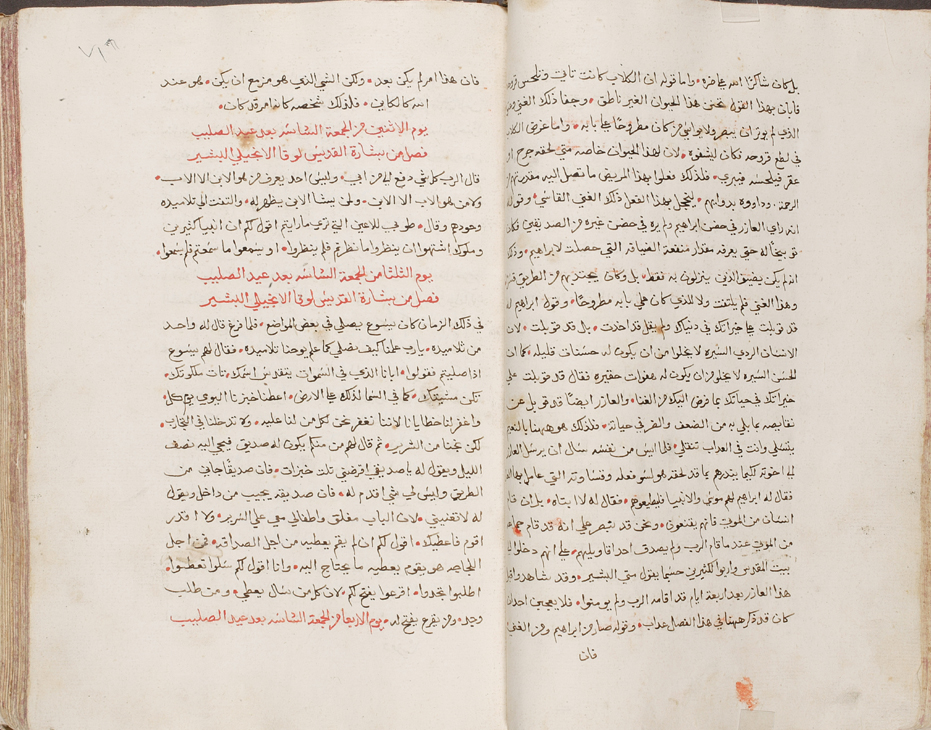 بل كان شاكرًا الله على ضره • واما قوله ان الكلاب كانت تاتي وتلحس قروحه
فابان بهذا القول تحنن هذا الحيوان الغير ناطق • وجفا ذلك الغني
الذي لم يوثر ان يبصر ولا يوالي من كان مطروحًا على بابه • واما غرض الكلاب
في لطع قروحه فكان ليشفوه • لان لهذا الحيوان خاصه متى لحقه جرح او
عقر فيلحسه فيبري • فلذلك فعلوا بهذا المريض ما تصل اليه مقدرتهم
الرحمة • وداووه بدوايهم • ليخجل بهذا الفعل ذلك الغني القاسي • وقوله
انه راي العازر في حضن ابراهيم ولم يره في حضن غيره من الصديقين فكان
حتى يعرفه مقدار منفعة الضيافة التي حصلت لابراهيم •
انه لم يكن يضيف الذين ينزلون به فقط • بل وكان يجتذبهم من الطريق
وهذا الغني فلم يلتفت ولا للذي كان على بابه مطروحًا • وقول ابراهيم له
قد قوبلت على خيراتك في دنياك ولم يقل قد اخذت • بل قد قوبلت • لان
الانسان الردي السيره لا يخلوا من ان يكون له حسنات قليله • كما ان
الحسن السيره لا يخلو من ان يكون له هفوات حقيره فقال قد قوبلت على
خيراتك في حياتك بما فرض اليك من الغنا • والعازر ايضًا قد قوبل عن
نقايصه بما بلي به من الضعف والفقر في حياته • فلذلك هو ههنا بالنعيم
يتسلى وانت في العذاب تتقلى • فلما ايس من نفسه سال ان يرسل العازر
الى اخوته كيما ينذرهم بما قد لحقه هو لسو فعله وقساوته التي عامل بها
فقال له ابراهيم لهم موسى والانبيا فليطيعوهم • فقال له لا ابتاه • بل ان قام
انسان من الموتى فانهم يقتنعون • ونحن قد نبصر على انه قد قام جماعه
من الموتى عند ما قام الرب ولم يصدق احد اقاويلهم • على انهم دخلوا الى
بيت المقدس واروا كثيرين حسبما يقول متى البشير • وقد شاهدوا
هذا العازر بعد اربعة ايام قد اقامه الرب ولم يومنوا • فلا يعجبن احد ان
كان قد ذكر ههنا في هذا الفصل عذاب • وقوله صار من ابراهيم ومن الغني
فان
فان هذا امر لم يكن بعد • ولكن الشي الذي هو مزمع ان يكون • هو عند
الله كالكاين • فلذلك شخصه كانه امر قد كان •
يوم الاثنين من الجمعة السادسه بعد عيد الصليب
فصل من بشارة القديس لوقا الانجيلي البشير
قال الرب كل شي دفع الي من ابي • وليس احد يعرف من هو الابن الا الاب •
ولا من هو الاب الا الابن • ولمن يشا الابن يظهر له • والتفت الى تلاميذه
وحدهم وقال • طوبى للاعين التي ترى ما رايتم اقول لكم ان انبيا كثيرين
وملوك اشتهوا ان ينظروا ما نظرتم فلم ينظروا • او يسمعوا ما سمعتم فلم يسمعوا •
يوم الثلثا من الجمعة السادسه بعد عيد الصليب
فصل من بشارة القديس لوقا الانجيلي البشير
في ذلك الزمان كان يسوع يصلي في بعض المواضع • فلما فرغ قال له واحد
من تلاميذه • يا رب علمنا كيف نصلي كما علم يوحنا تلاميذه • فقال لهم يسوع
اذا صليتم فقولوا • ابانا الذي في السموات يتقدس اسمك • تات ملكوتك •
تكن مشيتك • كما في السما كذلك على الارض • اعطنا خبزنا اليومي يوم كل •
واغفر لنا خطايانا لاننا نغفر نحن لكل من لنا عليه • ولا تدخلنا في التجارب •
لكن نجنا من الشرير • ثم قال لهم من منكم يكون له صديق فيجي اليه نصف
الليل ويقول له يا صديقي اقرضني ثلث خبزات • فان صديقًا جاني من
الطريق وليس لي شي اقدم له • فان صديقه يجيب من داخل ويقول
له لا تعنيني • لان الباب مغلق واطفالي معي على السرير • ولا اقدر
اقوم فاعطيك • اقول لكم ان لم يقم يعطيه من اجل الصداقه • فمن اجل
اللجاجه هو يقوم يعطيه ما يحتاج اليه • وانا اقول لكم سلوا تعطوا •
اطلبوا تجدوا • اقرعوا يفتح لكم • لان كل من سال يعطى • ومن طلب
وجد • ومن يقرع يفتح له • يوم الاربعا من الجمعة السادسه بعد عيد الصليب